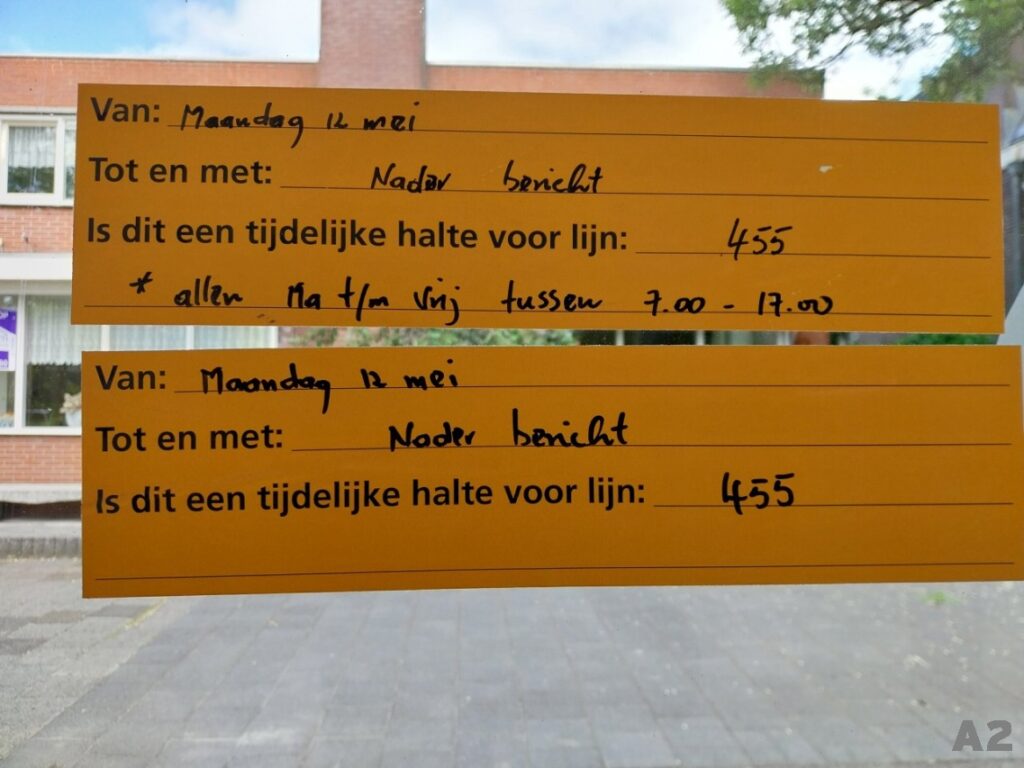 Van: Maandag 12 mei
Tot en met: Nader bericht
Is dit een tijdelijke halte voor lijn: 455
* allen Ma t/m Vrij tussen 7.00 - 17.00
Van: Maandag 12 mei
Tot en met: Nader bericht
Is dit een tijdelijke halte voor lijn: 455
A2